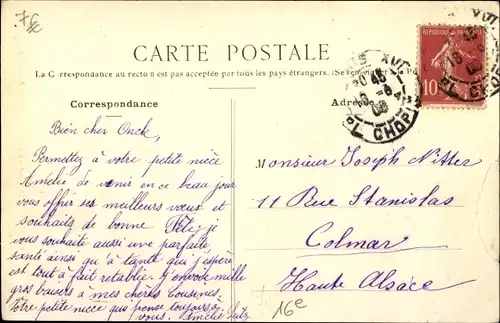 CARTE POSTALE
La Correspondance au recto n'est pas acceptée par tous les pays étrangers. (Se
Correspondance
Adresse
Bien cher Oncle,
Permettez à votre petite nièce
Amélie de venir en ce beau jour
vous offrir ses meilleurs vœux et
souhaits de bonne Fête; je
vous souhaite aussi une parfaite
santé ainsi qu'à tante qui j'espère
est tout à fait rétablie. J'envoie mille
gros baisers à mes chères Cousines.
Votre petite nièce qui pense toujours à
vous. Amélie
Monsieur Joseph Nitter
11 Rue Stanislas
Colmar
Haute Alsace
16e
REPUBLIQUE FRANÇAISE
10
XVII
PL. CHOPIN